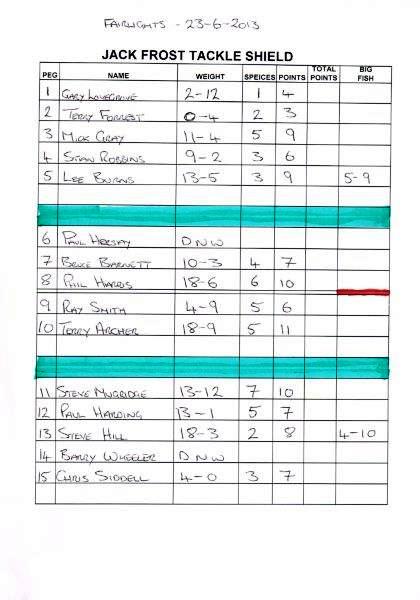 FAIRLIGHTS - 23-6-2013
JACK FROST TACKLE SHIELD
PEG NAME WEIGHT SPEICES POINTS TOTAL POINTS BIG FISH
1 GARY LOVEGROVE 2-12 1 4
2 TERRY FORREST 0-4 2 3
3 MICK GRAY 11-4 5 9
4 STAN ROBBINS 9-2 3 6
5 LEE BURNS 13-5 3 9 5-9
6 PAUL HERSAY DNW
7 BRUCE BARNETT 10-3 4 7
8 PHIL HARRIS 18-6 6 10
9 RAY SMITH 4-9 5 6
10 TERRY ARCHER 18-9 5 11
11 STEVE MUGRIDGE 13-12 7 10
12 PAUL HARDING 13-1 5 7
13 STEVE HILL 18-3 2 8 4-10
14 BARRY WHEELER DNW
15 CHRIS SIDDELL 4-0 3 7